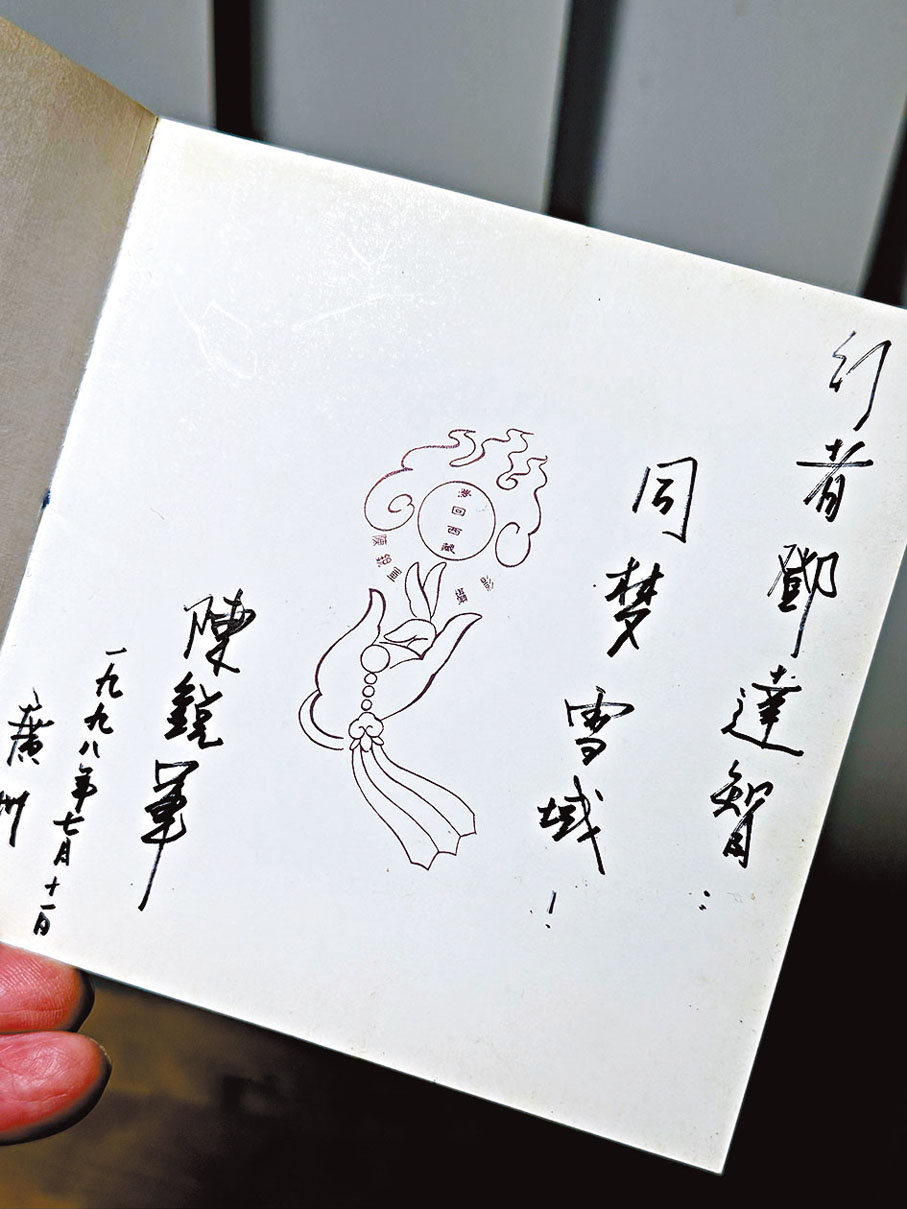 行者鄧達智：
同梦雪域！
梦回西藏
陳銳軍
攝
陳銳軍
一九九八年七月十一日
廣州